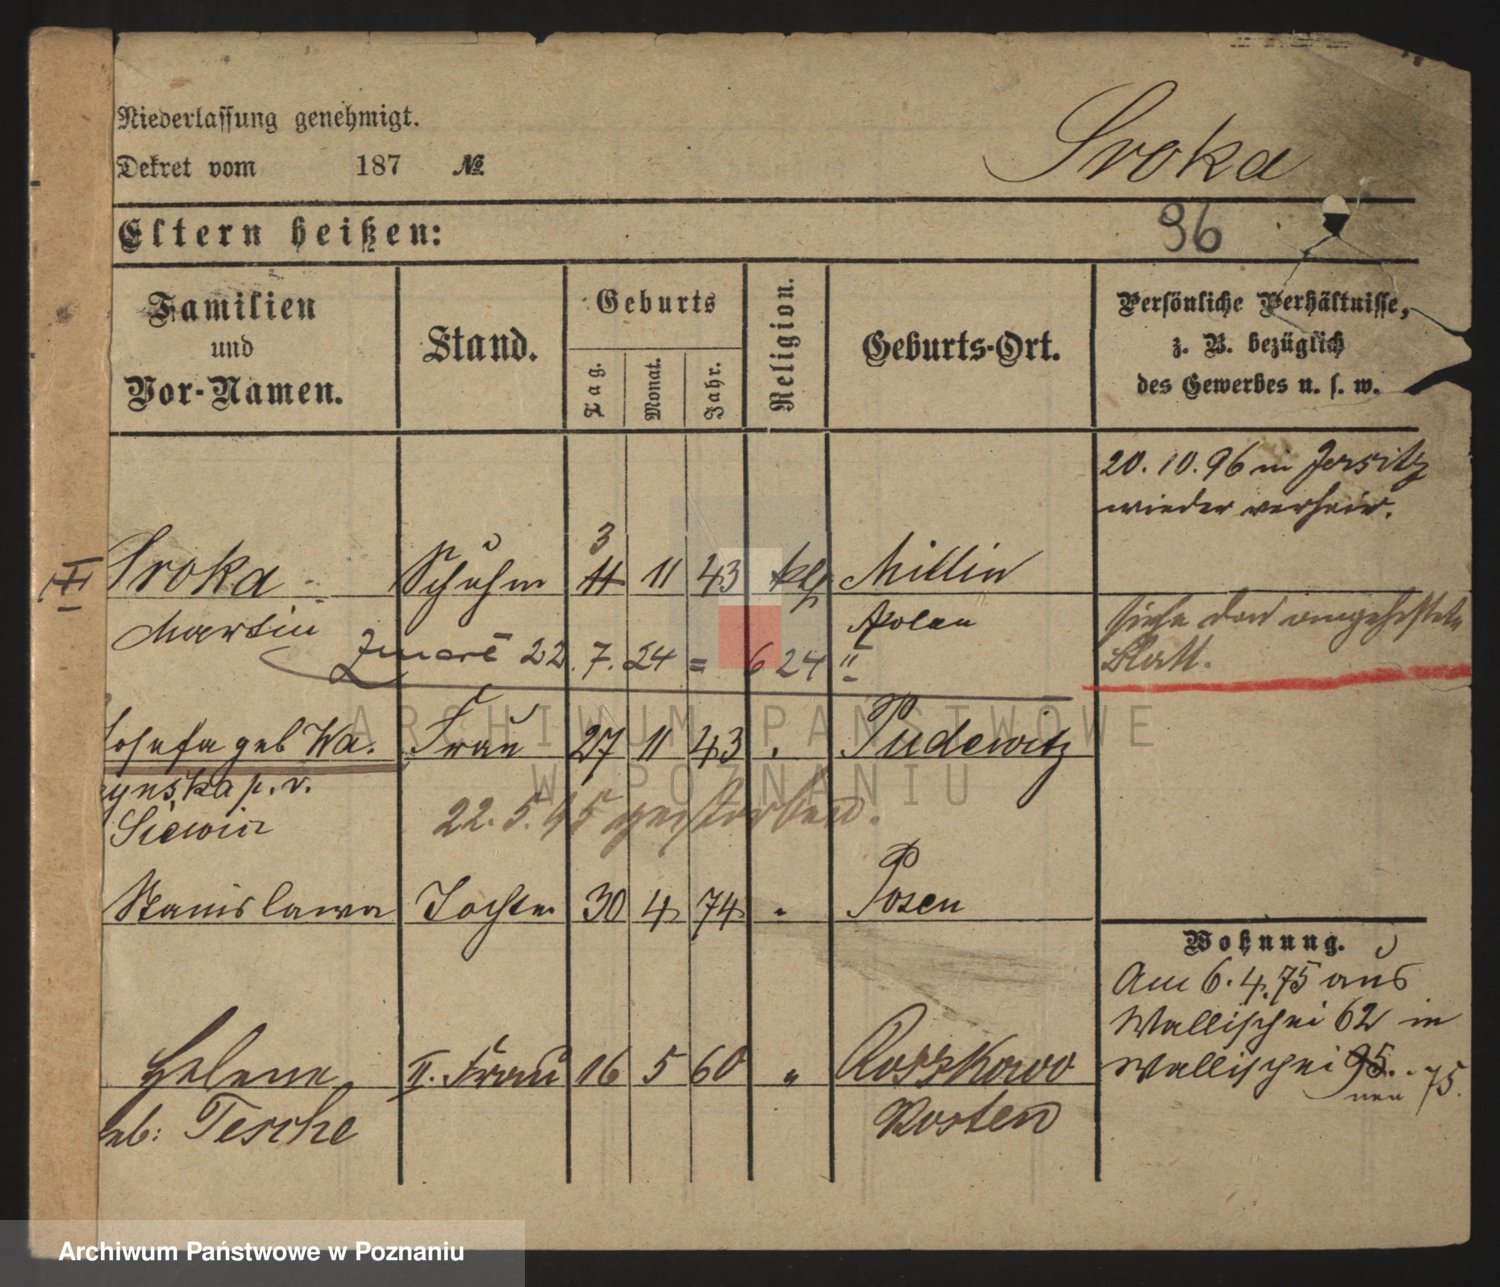 Niederlassung genehmigt.
Sroka
Dekret vom 187 №
Eltern heißen:
96
Familien und Vor-Namen.
Stand.
Geburts
Tag.
Monat.
Jahr.
Religion.
Geburts-Ort.
Persönliche Verhältnisse,
z. B. bezüglich
des Gewerbes u. s. w.
20.10.96 in Jersitz
wieder verheir.
3
Sroka Schuhm 11 11 43 kth Millin
Martin Polen
siehe das angeheftete
Blatt.
Zmarł 22.7.24 = 624
Josefa geb Wa. Frau 27 11 43 Pudewitz
ynska p. v.
22.5.95 gestorben.
Stanislawa Tochter 30 4 74 " Posen
Wohnung.
Am 6.4.75 aus
Wallischei 62 in
Wallischei 95.
neu 75.
Helene II. Frau 16 5 60 " Roszkowo
geb: Tesche Kosten
ARCHIWUM PAŃSTWOWE
W POZNANIU
Archiwum Państwowe w Poznaniu